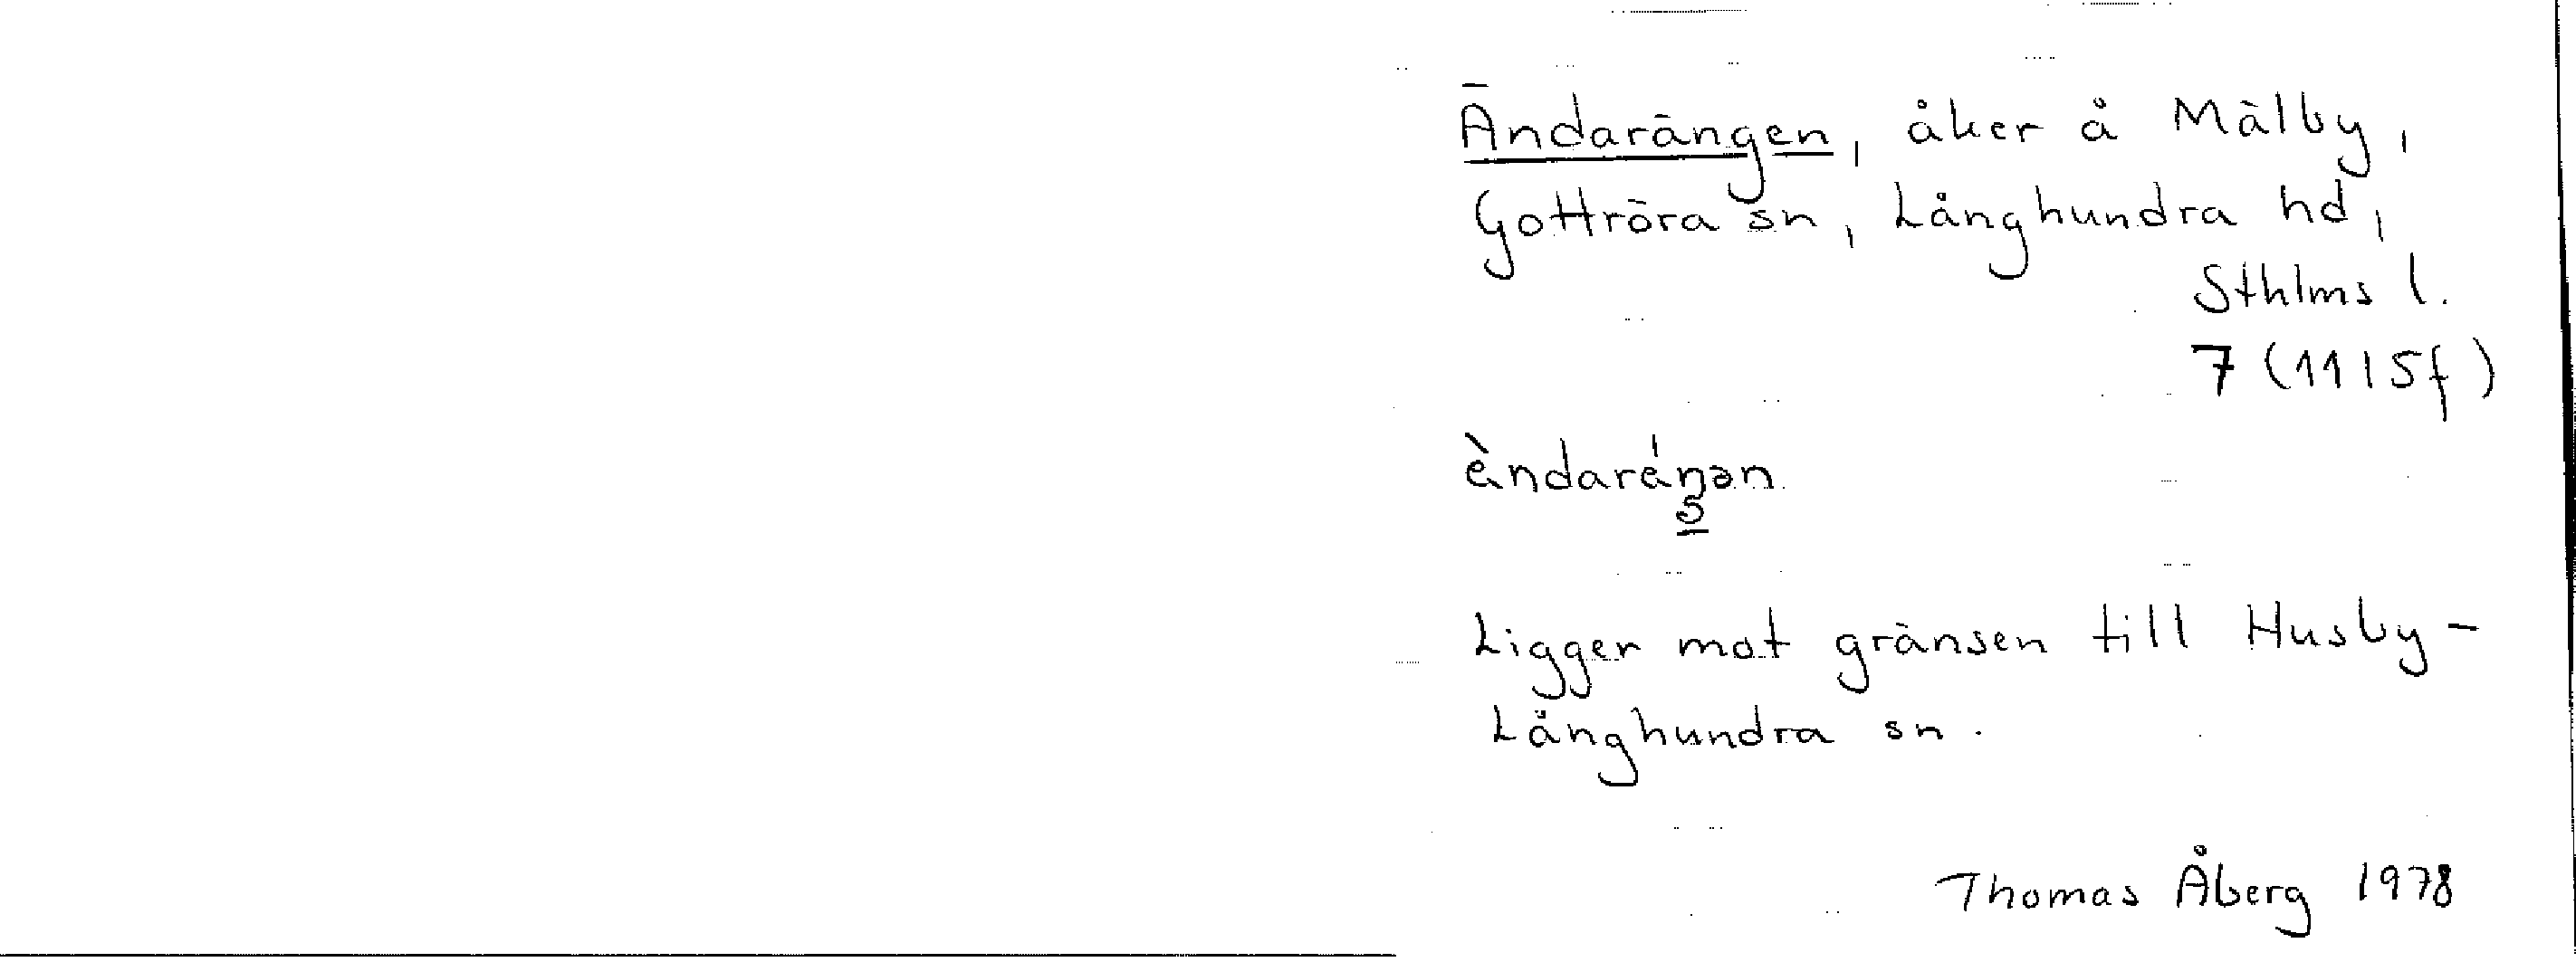 Ändarängen, åker å Mälby,
Gottröra sn, Långhundra hd,
Sthlms l.
7 (1115f)
ä̀ndarä́ŋən
5
Ligger mot gränsen till Husby-
Långhundra sn.
Thomas Åberg 1978